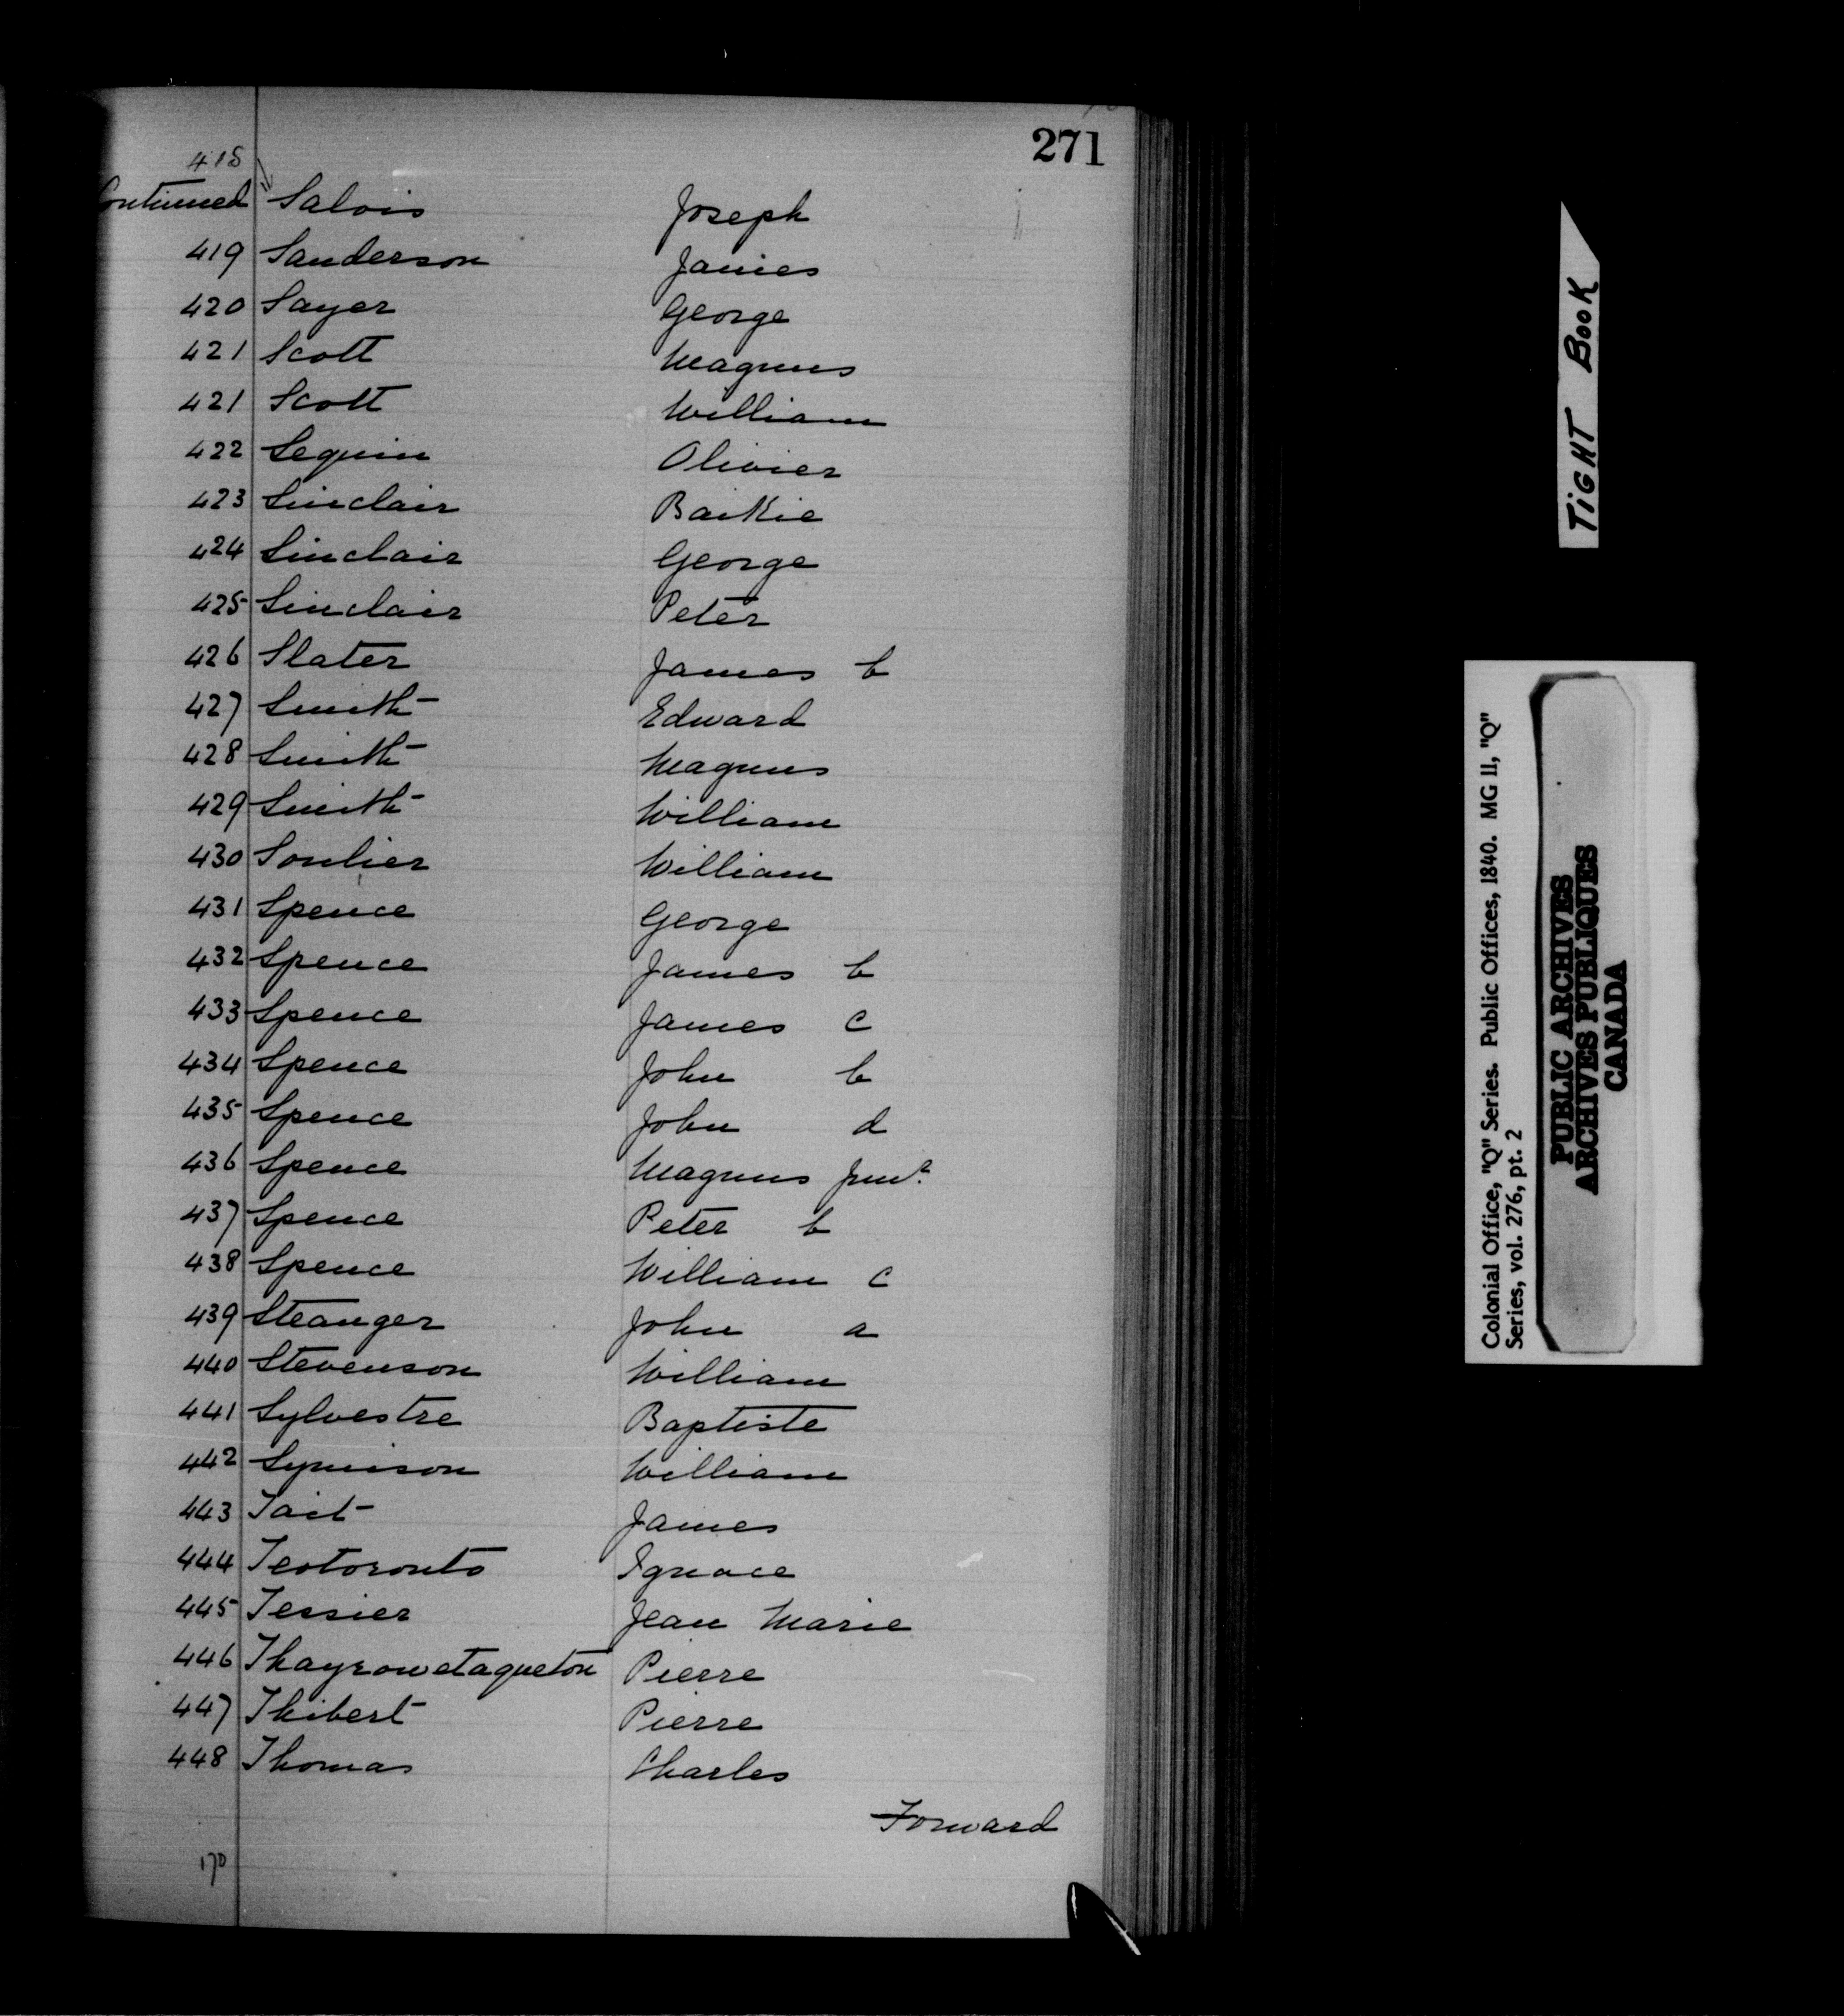 271
418
Continued Salois Joseph
419 Sanderson James
420 Sayer George
421 Scott Magnus
421 Scott William
422 Seguin Olivier
423 Sinclair Baikie
424 Sinclair George
425 Sinclair Peter
426 Slater James b
427 Smith Edward
428 Smith Magnus
429 Smith William
430 Soulier William
431 Spence George
432 Spence James b
433 Spence James c
434 Spence John b
435 Spence John d
436 Spence Magnus Junr.
437 Spence Peter b
438 Spence William c
439 Stanger John a
440 Stevenson William
441 Sylvestre Baptiste
442 Symison William
443 Tait James
444 Teotoronto Ignace
445 Tessier Jean Marie
446 Thayrowetaqueton Pierre
447 Thibert Pierre
448 Thomas Charles
Forward
170
TIGHT BOOK
Colonial Office, "Q" Series. Public Offices, 1840. MG 11, "Q"
Series, vol. 276, pt. 2
PUBLIC ARCHIVES
ARCHIVES PUBLIQUES
CANADA